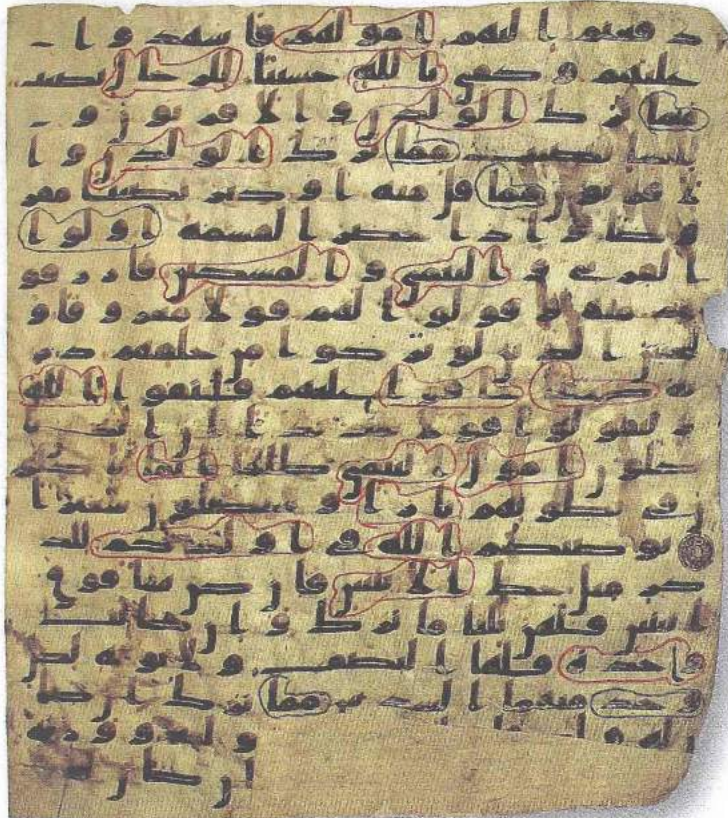 دفعتم اليهم امولهم فاشهدوا
عليهم وكفى بالله حسيبا للرجال نصيب
مما ترك الولدن والاقربون و
للنسا نصيب مما ترك الولدن وا
لاقربون مما قل منه او كثر نصيبا مفر
وضا واذا حضر القسمة اولوا
القربى واليتمى والمسكين فارزقو
هم منه وقولوا لهم قولا معروفا و
ليخش الذين لو تركوا من خلفهم ذر
ية ضعفا خافوا عليهم فليتقوا الله
وليقولوا قولا سديدا ان الذين يا
كلون امول اليتمى ظلما انما ياكلو
ن في بطونهم نارا وسيصلون سعيرا
يوصيكم الله في اولدكم للذ
كر مثل حظ الانثيين فان كن نسا فوق
اثنتين فلهن ثلثا ما ترك وان كانت
وحدة فلها النصف ولابويه لكل
وحد منهما السدس مما ترك ان كا
ن له
ولد وورثه